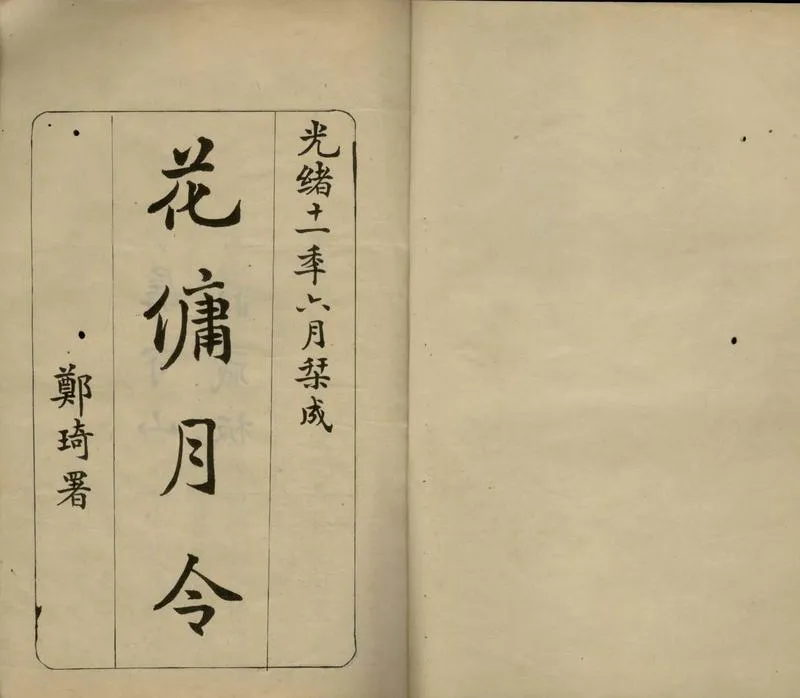 光緒十一秊六月栞成
花傭月令
鄭琦署